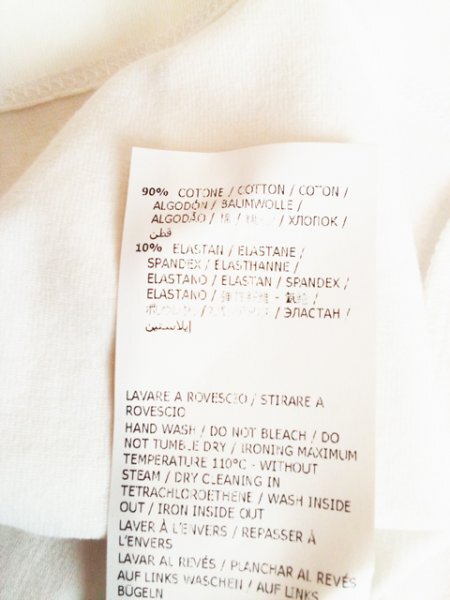 90% COTONE / COTTON / COTTON /
ALGODÓN / BAUMWOLLE /
ALGODÃO / 棉 / / ХЛОПОК /
قطن
10% ELASTAN / ELASTANE /
SPANDEX / ELASTHANNE /
ELASTANO / ELASTAN / SPANDEX /
ELASTANO / - /
/ / ЭЛАСТАН /
إيلاستين
LAVARE A ROVESCIO / STIRARE A
ROVESCIO
HAND WASH / DO NOT BLEACH / DO
NOT TUMBLE DRY / IRONING MAXIMUM
TEMPERATURE 110°C - WITHOUT
STEAM / DRY CLEANING IN
TETRACHLOROETHENE / WASH INSIDE
OUT / IRON INSIDE OUT
LAVER À L'ENVERS / REPASSER À
L'ENVERS
LAVAR AL REVÉS / PLANCHAR AL REVÉS
AUF LINKS WASCHEN / AUF LINKS
BÜGELN